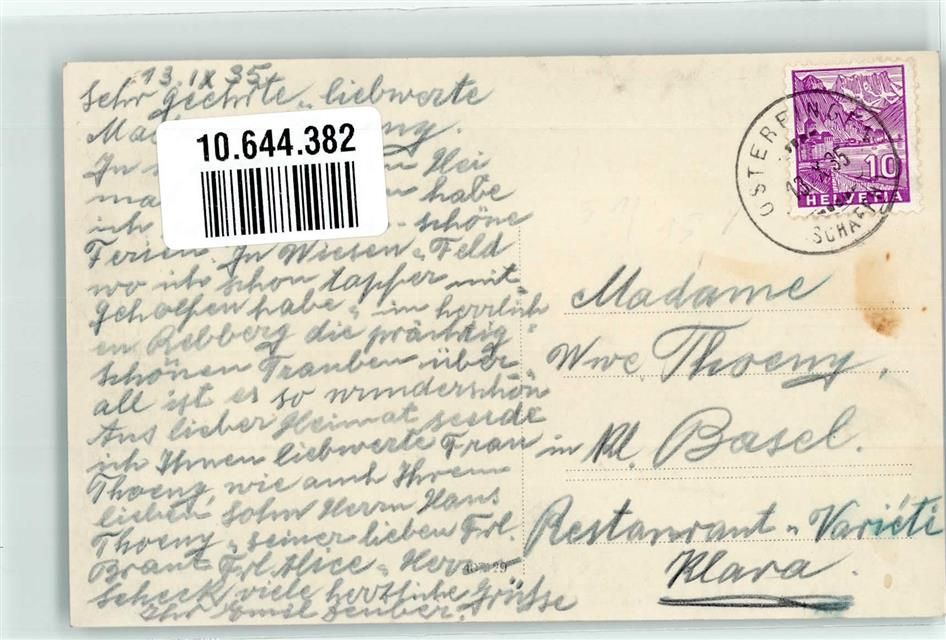 13.IX 35
Sehr geehrte, liebwerte
10.644.382
In Hei
habe
ich schöne
Ferien. In Wiesen u Feld
wo ich schon tapfer mit-
geholfen habe, im herrlich
en Rebberg die prächtig
schönen Trauben über
all ist es so wunderschön
Aus lieber Heimat sende
ich Ihnen liebwerte Frau
Thoeny, wie auch Ihrem
lieben Sohn Herrn Hans
Thoeny u seiner lieben Frl.
Braut Frl. Alice u Herrn
viele herzliche Grüsse
Ihr Emil
HELVETIA
10
Madame
Wwe, Thoeny,
in Kl. Basel.
Restaurant u Variéti
Klara.